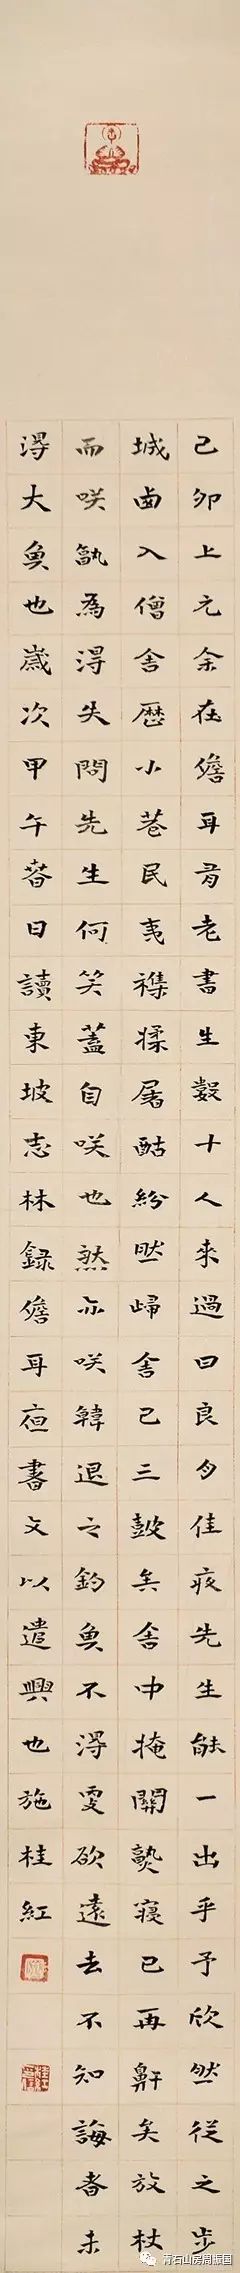 己卯上元余在儋耳有老書生數十人來過曰良月佳夜先生能一出乎予欣然從之步
城西入僧舍歷小巷民夷雜揉屠酤紛然歸舍已三鼓矣舍中掩關熟寢已再鼾矣放杖
而咲孰為得失問先生何笑蓋自咲也然亦咲韓退之釣魚不得更欲遠去不知誨者未
得大魚也歲次甲午春日讀東坡志林録儋耳夜書文以遣興也施桂紅
青石山房周振国